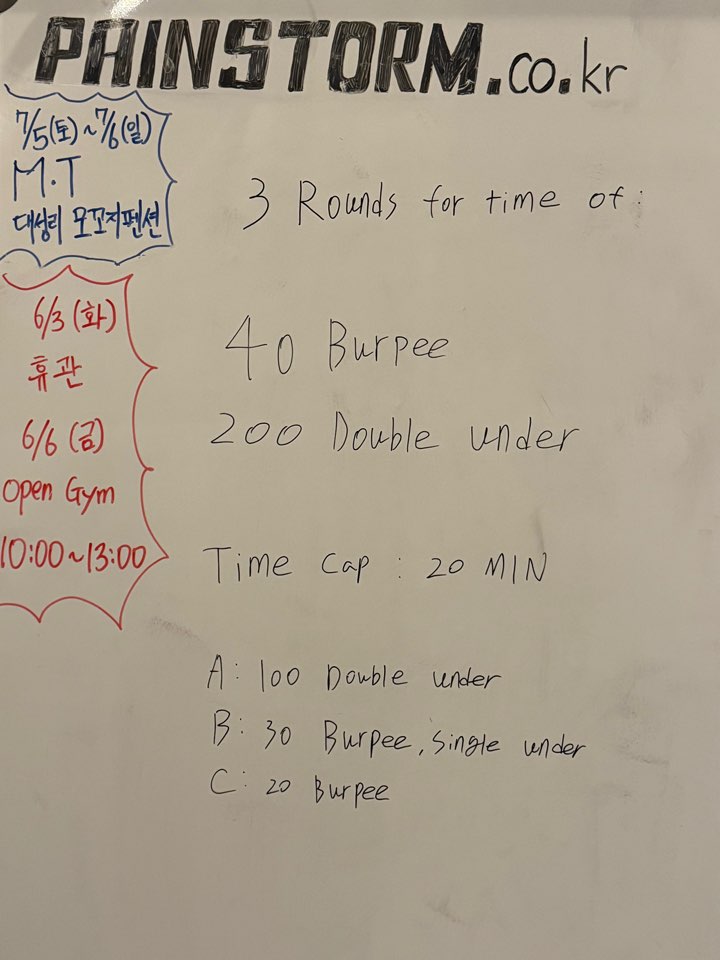 PAINSTORM.co.kr
7/5(토)~7/6(일)
M.T
대성리 모꼬지펜션
6/3 (화)
휴관
6/6 (금)
Open Gym
10:00~13:00
3 Rounds for time of:
40 Burpee
200 Double under
Time Cap : 20 MIN
A: 100 Double under
B: 30 Burpee, Single under
C: 20 Burpee